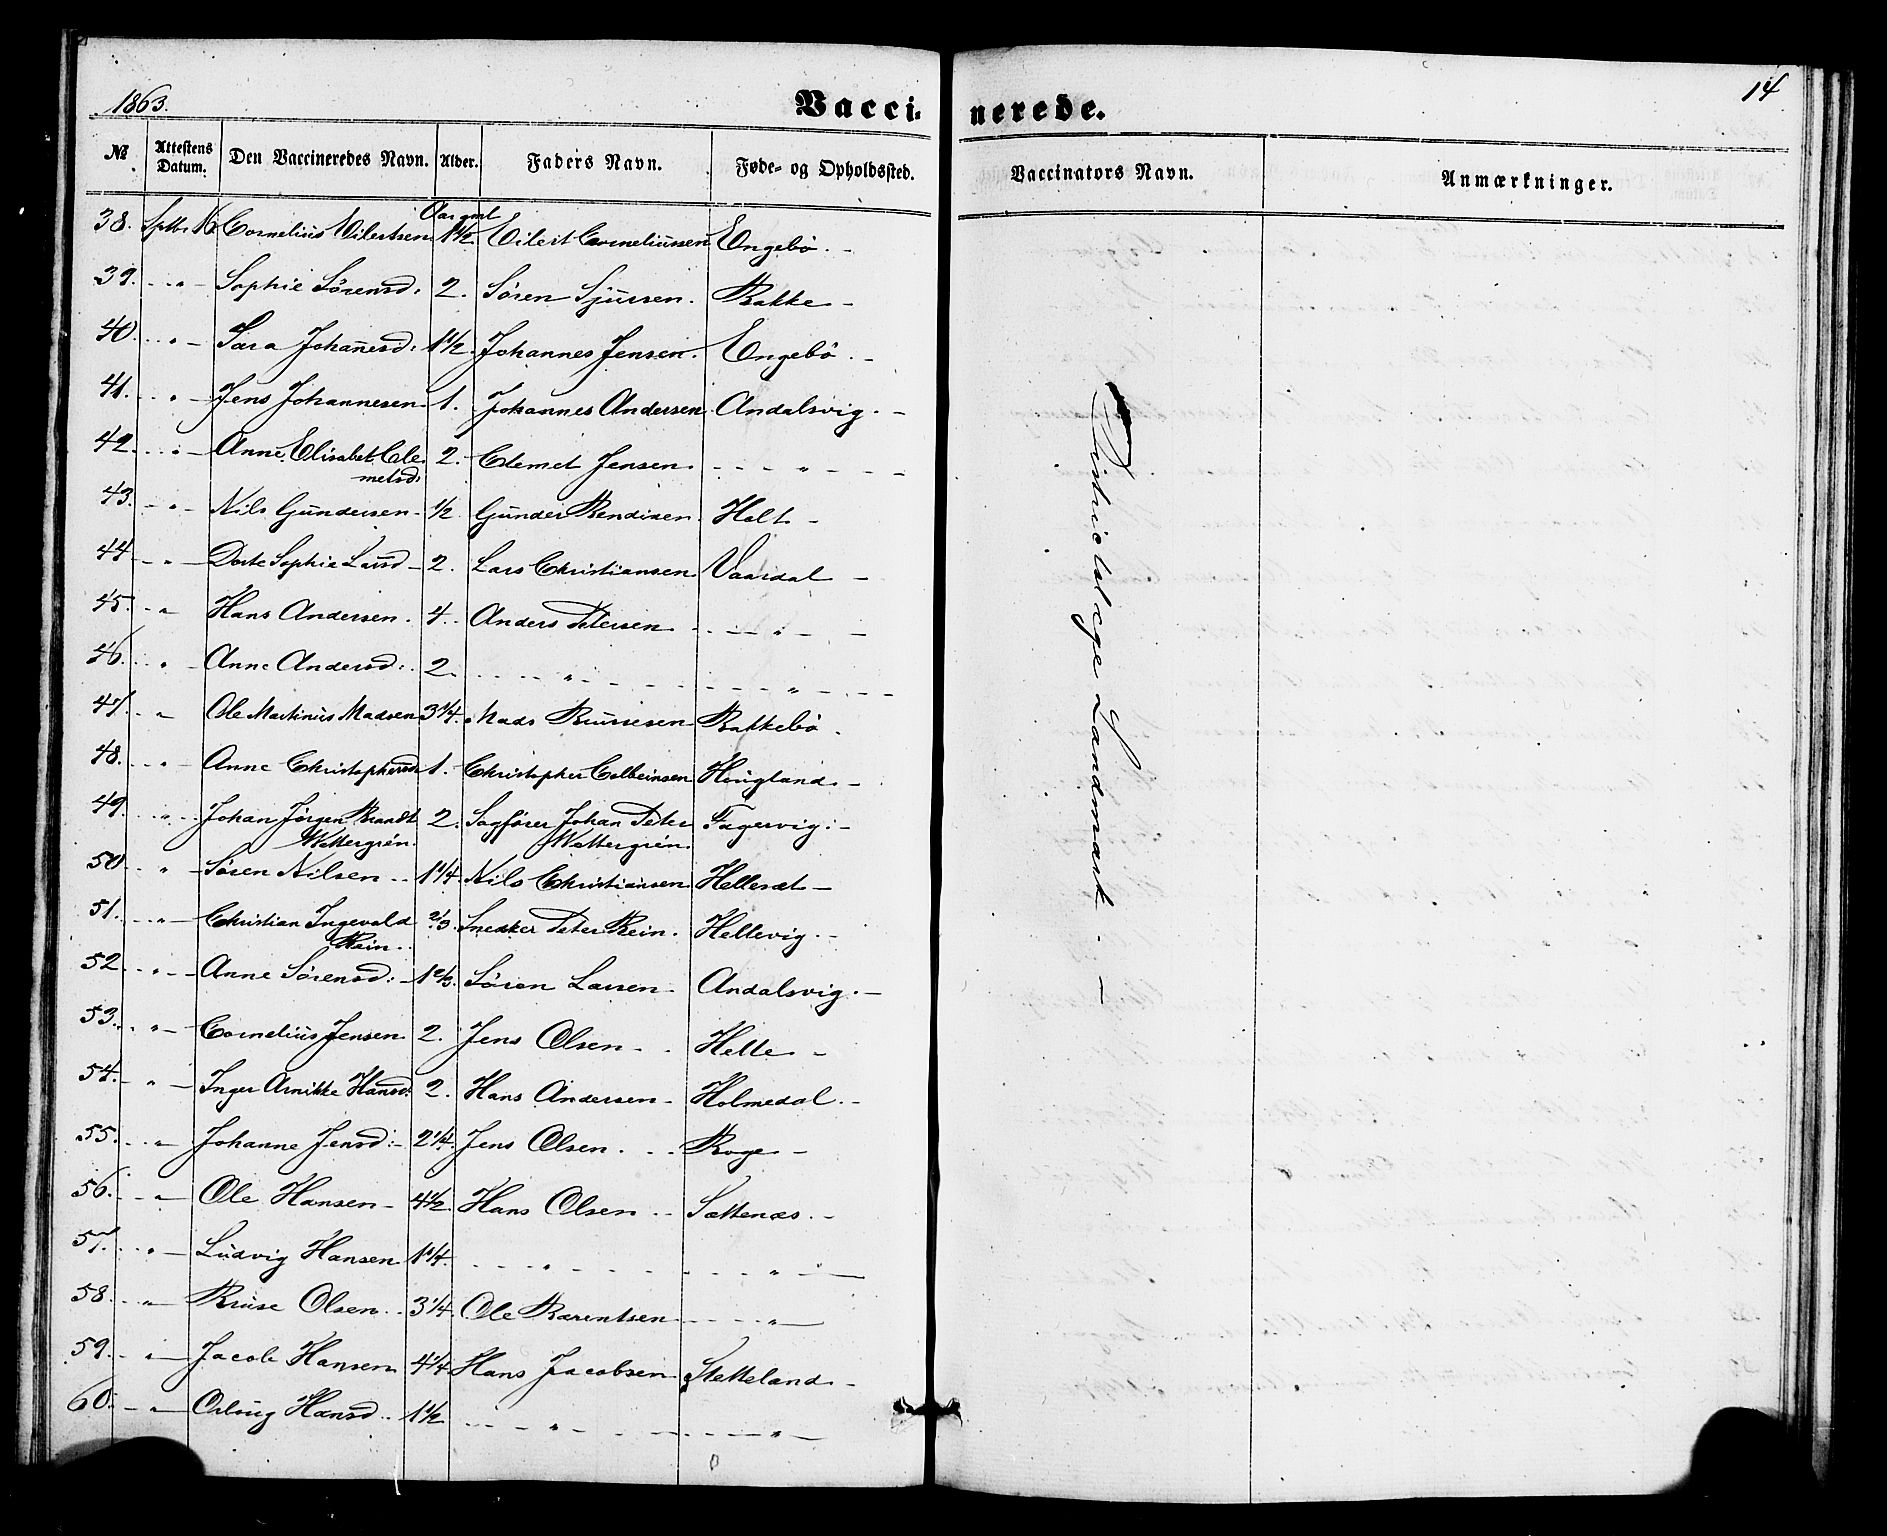 1863.
Vacci- nerede.
14
№ Attestens Datum. Den Vaccineredes Navn. Alder. Faders Navn. Føde- og Opholdssted. Vaccinators Navn. Anmærkninger.
Aar gml
38. Sptbr 16 Cornelius Eilertsen 1 1/2. Eilert Corneliussen Engebö. -
39. - " - Sophie Sörensd: 2. Sören Sjursen. Bakke -
40. - " - Sara Johañesd: 1 1/2. Johannes Jensen. Engebö. -
41. - " - Jens Johannesen 1. Johannes Andersen. Andalsvig. -
42. - " - Anne Elisabet Cle- 2. Clemet Jensen. - - " - -
metsd:
43. - " - Nils Gundersen - 1/2. Gunder Bendixen. Holt -
44 - " - Dorte Sophie Larsd - 2. Lars Christiansen Vaardal -
45. - " Hans Andersen. 4. Anders Petersen - - " - -
46. - " Anne Andersd: 2. - - " - - - - " - -
47. - " Ole Martinus Madsen 3 3/4. Mads Brusesen Bakkebö.
48. - " Anne Christophersd 1. Christopher Colbeinsen Hougland -
49. - " - Johan Jörgen Brandt 2. Sagförer Johan Peter Fagervig: -
Wettergrén. Wettergrén.
50 - " - Sören Nilsen - 1 1/4. Nils Christiansen Hellesæt -
51. - " - Christian Ingevald 2/3. Snedker Peter Rein. Hellevig. -
Rein. -
52 - " - Anne Sörensd: - 1 2/3. Sören Larsen - Andalsvig. -
53. - " - Cornelius Jensen 2. Jens Olsen - Helle -
54. - " - Inger Arnikke Hansd: 2. Hans Andersen - Holmedal. -
55. - " Johanne Jensd: - 2 1/4. Jens Olsen. - Boge -
56. - " Ole Hansen - 4 1/2. Hans Olsen - Sættenæs. -
57. - " - Ludvig Hansen 1 3/4. - - " - - - - " -
58. - " Kruse Olsen. - 3 1/4. Ole Barentsen - - " -
59. - " - Jacob Hansen 4 1/4 Hans Jacobsen Stetteland -
60. - " - Oline Hansd. - 1 1/2 - - " - - - - " -
Districtslæge Landmark. -